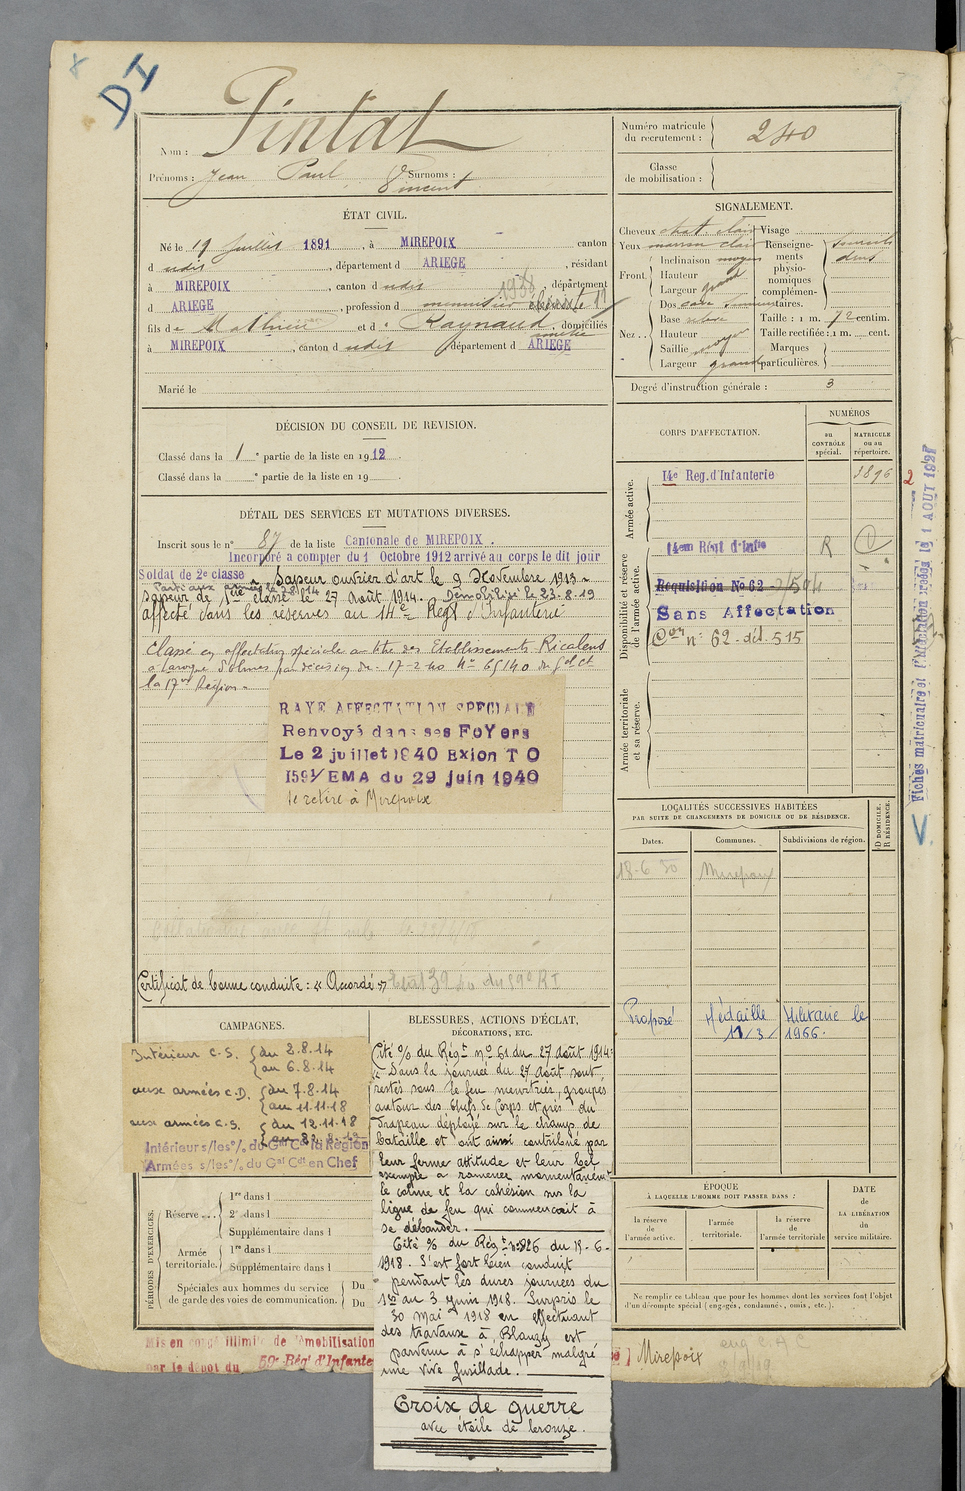 DI
Nom : Pintat
Prénoms : Jean Paul Vincent Surnoms :
Numéro matricule
du recrutement : 240
Classe
de mobilisation :
ÉTAT CIVIL.
Né le 19 Juillet 1891, à MIREPOIX canton
d udit, département d ARIEGE, résidant
à MIREPOIX, canton d udit, département
d ARIEGE, profession d menuisier
fils de Mathieu et de Raynaud, domiciliés
à MIREPOIX, canton d udit département d ARIEGE
Marié le
SIGNALEMENT.
Cheveux chat. clair
Yeux marron clair
Front. Inclinaison moyen
Hauteur
Largeur grand
Nez.. Dos
Base
Hauteur
Saillie moyen
Largeur grand
Visage
Renseigne-
ments
physio-
nomiques
complémen-
taires.
Taille : 1 m. 72 centim.
Taille rectifiée : 1 m. cent.
Marques
particulières.
Degré d'instruction générale : 3
DÉCISION DU CONSEIL DE REVISION.
Classé dans la 1e partie de la liste en 1912.
Classé dans la e partie de la liste en 19
DÉTAIL DES SERVICES ET MUTATIONS DIVERSES.
Inscrit sous le n° 87 de la liste Cantonale de MIREPOIX.
Incorporé a compter du 1 Octobre 1912 arrivé au corps le dit jour
Soldat de 2e classe Sapeur ouvrier d'art le 9 Novembre 1913
Parti aux armées le
Sapeur de 1ère classe le 27 Août 1914. Démobilisé le 23.8.19
affecté dans les réserves au 14e Régt d'Infanterie
Classé en affectation spéciale au titre des Etablissements Ricalens
à Laroque d'Olmes par décision du 17-2-40 N° 65140 du Gal Ct
la 17me Région
RAYE AFFECTATION SPECIALE
Renvoyé dans ses FoYers
Le 2 juillet 1940 Exion T O
159 1/EMA du 29 juin 1940
se retire à Mirepoix
Certificat de bonne conduite : « Accordé » du 59e RI
CORPS D'AFFECTATION.
NUMÉROS
au
CONTRÔLE
spécial.
MATRICULE
ou au
répertoire.
Armée active.
14e Reg. d'Infanterie 3896
2
Disponibilité et réserve
de l'armée active.
14em Régt d'Infie R
Réquisition No 62
Sans Affectation
Con n° 62 - dél. 515
Armée territoriale
et sa réserve.
Fiches matriculaire et d'Affectation créées le 1 AOUT 1927
LOCALITÉS SUCCESSIVES HABITÉES
PAR SUITE DE CHANGEMENTS DE DOMICILE OU DE RÉSIDENCE.
Dates.
Communes.
Subdivisions de région.
D DOMICILE.
R RÉSIDENCE.
18-6 30 Mirepoix
Proposé Médaille Militaire le
11/3/ 1966.
CAMPAGNES.
Intérieur C.S. { du 2.8.14
au 6.8.14
aux armées C.D. { du 7.8.14
au 11.11.18
aux armées C.S. { du 12.11.18
Intérieur s/les °/. du Gal Cdt la Région
Armées s/les °/. du Gal Cdt en Chef
BLESSURES, ACTIONS D'ÉCLAT,
DÉCORATIONS, ETC.
Cité % du Régt no 61 du 27 août 1914 :
« Dans la journée du 27 Août sont
restés sous le feu meurtrier, groupés
autour des chefs de Corps et près du
drapeau déployé sur le champ de
bataille et ont ainsi contribué par
leur ferme attitude et leur bel
exemple a ramener momentanémt
le calme et la cohésion sur la
ligne de feu qui commencait à
se débander.
Cité % du Régt n° 326 du 18-6-
1918. S'est fort bien conduit
pendant les dures journées du
1er au 3 Juin 1918. Surpris le
30 Mai 1918 en effectuant
des travaux à Blanzy est
parvenu à s'échapper malgré
une vive fusillade.
Croix de guerre
avec étoile de bronze.
PÉRIODES D'EXERCICES.
Réserve... 1re dans l
2e dans l
Supplémentaire dans l
Armée
territoriale. 1re dans l
Supplémentaire dans l
Spéciales aux hommes du service
de garde des voies de communication. Du
Du
ÉPOQUE
À LAQUELLE L'HOMME DOIT PASSER DANS :
la réserve
de l'armée active.
l'armée
territoriale.
la réserve
de l'armée territoriale
DATE
de
LA LIBÉRATION
du
service militaire.
Ne remplir ce tableau que pour les hommes dont les services font l'objet
d'un décompte spécial (engagés, condamnés, omis, etc.).
Mis en congé illimité de démobilisation
par le dépôt du 59e Régt d'Infanterie
Mirepoix